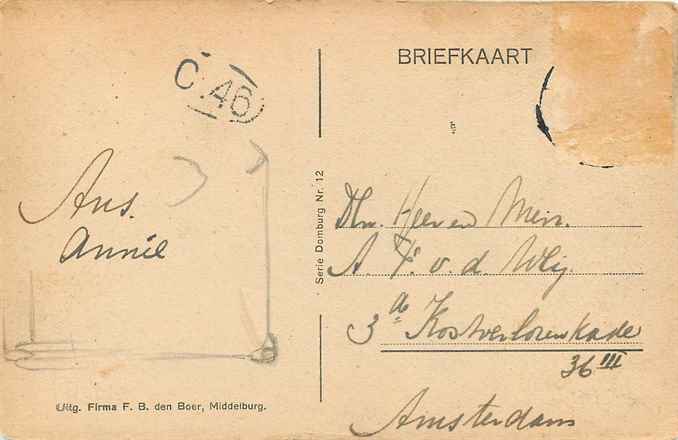 BRIEFKAART
C 46
Ans.
Annie
Serie Domburg Nr. 12
Heer en Mevr.
A. F. v. d. Wey.
3a Kostverlorenkade
36 III
Amsterdam
Uitg. Firma F. B. den Boer, Middelburg.